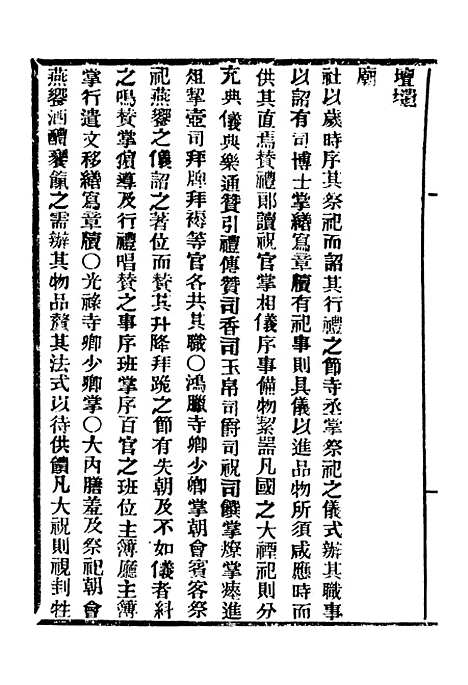 壇壝
廟
社以歲時序其祭祀而詔其行禮之節寺丞掌祭祀之儀式辦其職事
以詔有司博士掌繕寫章牘有祀事則具儀以進品物所須咸應時而
供其直焉贊禮郎讀祝官掌相儀序事備物絜器凡國之大禋祀則分
充典儀典樂通贊引禮傳贊司香司玉帛司爵司祝司饌掌燎掌瘞進
俎挈壺司拜牌拜褥等官各共其職〇鴻臚寺卿少卿掌朝會賓客祭
祀燕饗之儀詔之著位而贊其升降拜跪之節有失朝及不如儀者糾
之鳴贊掌儐導及行禮唱贊之事序班掌序百官之班位主簿廳主簿
掌行遣文移繕寫章牘〇光祿寺卿少卿掌〇大內膳羞及祭祀朝會
燕饗酒醴餼之需辦其物品贅其法式以待供饋凡大祀則視刲牲